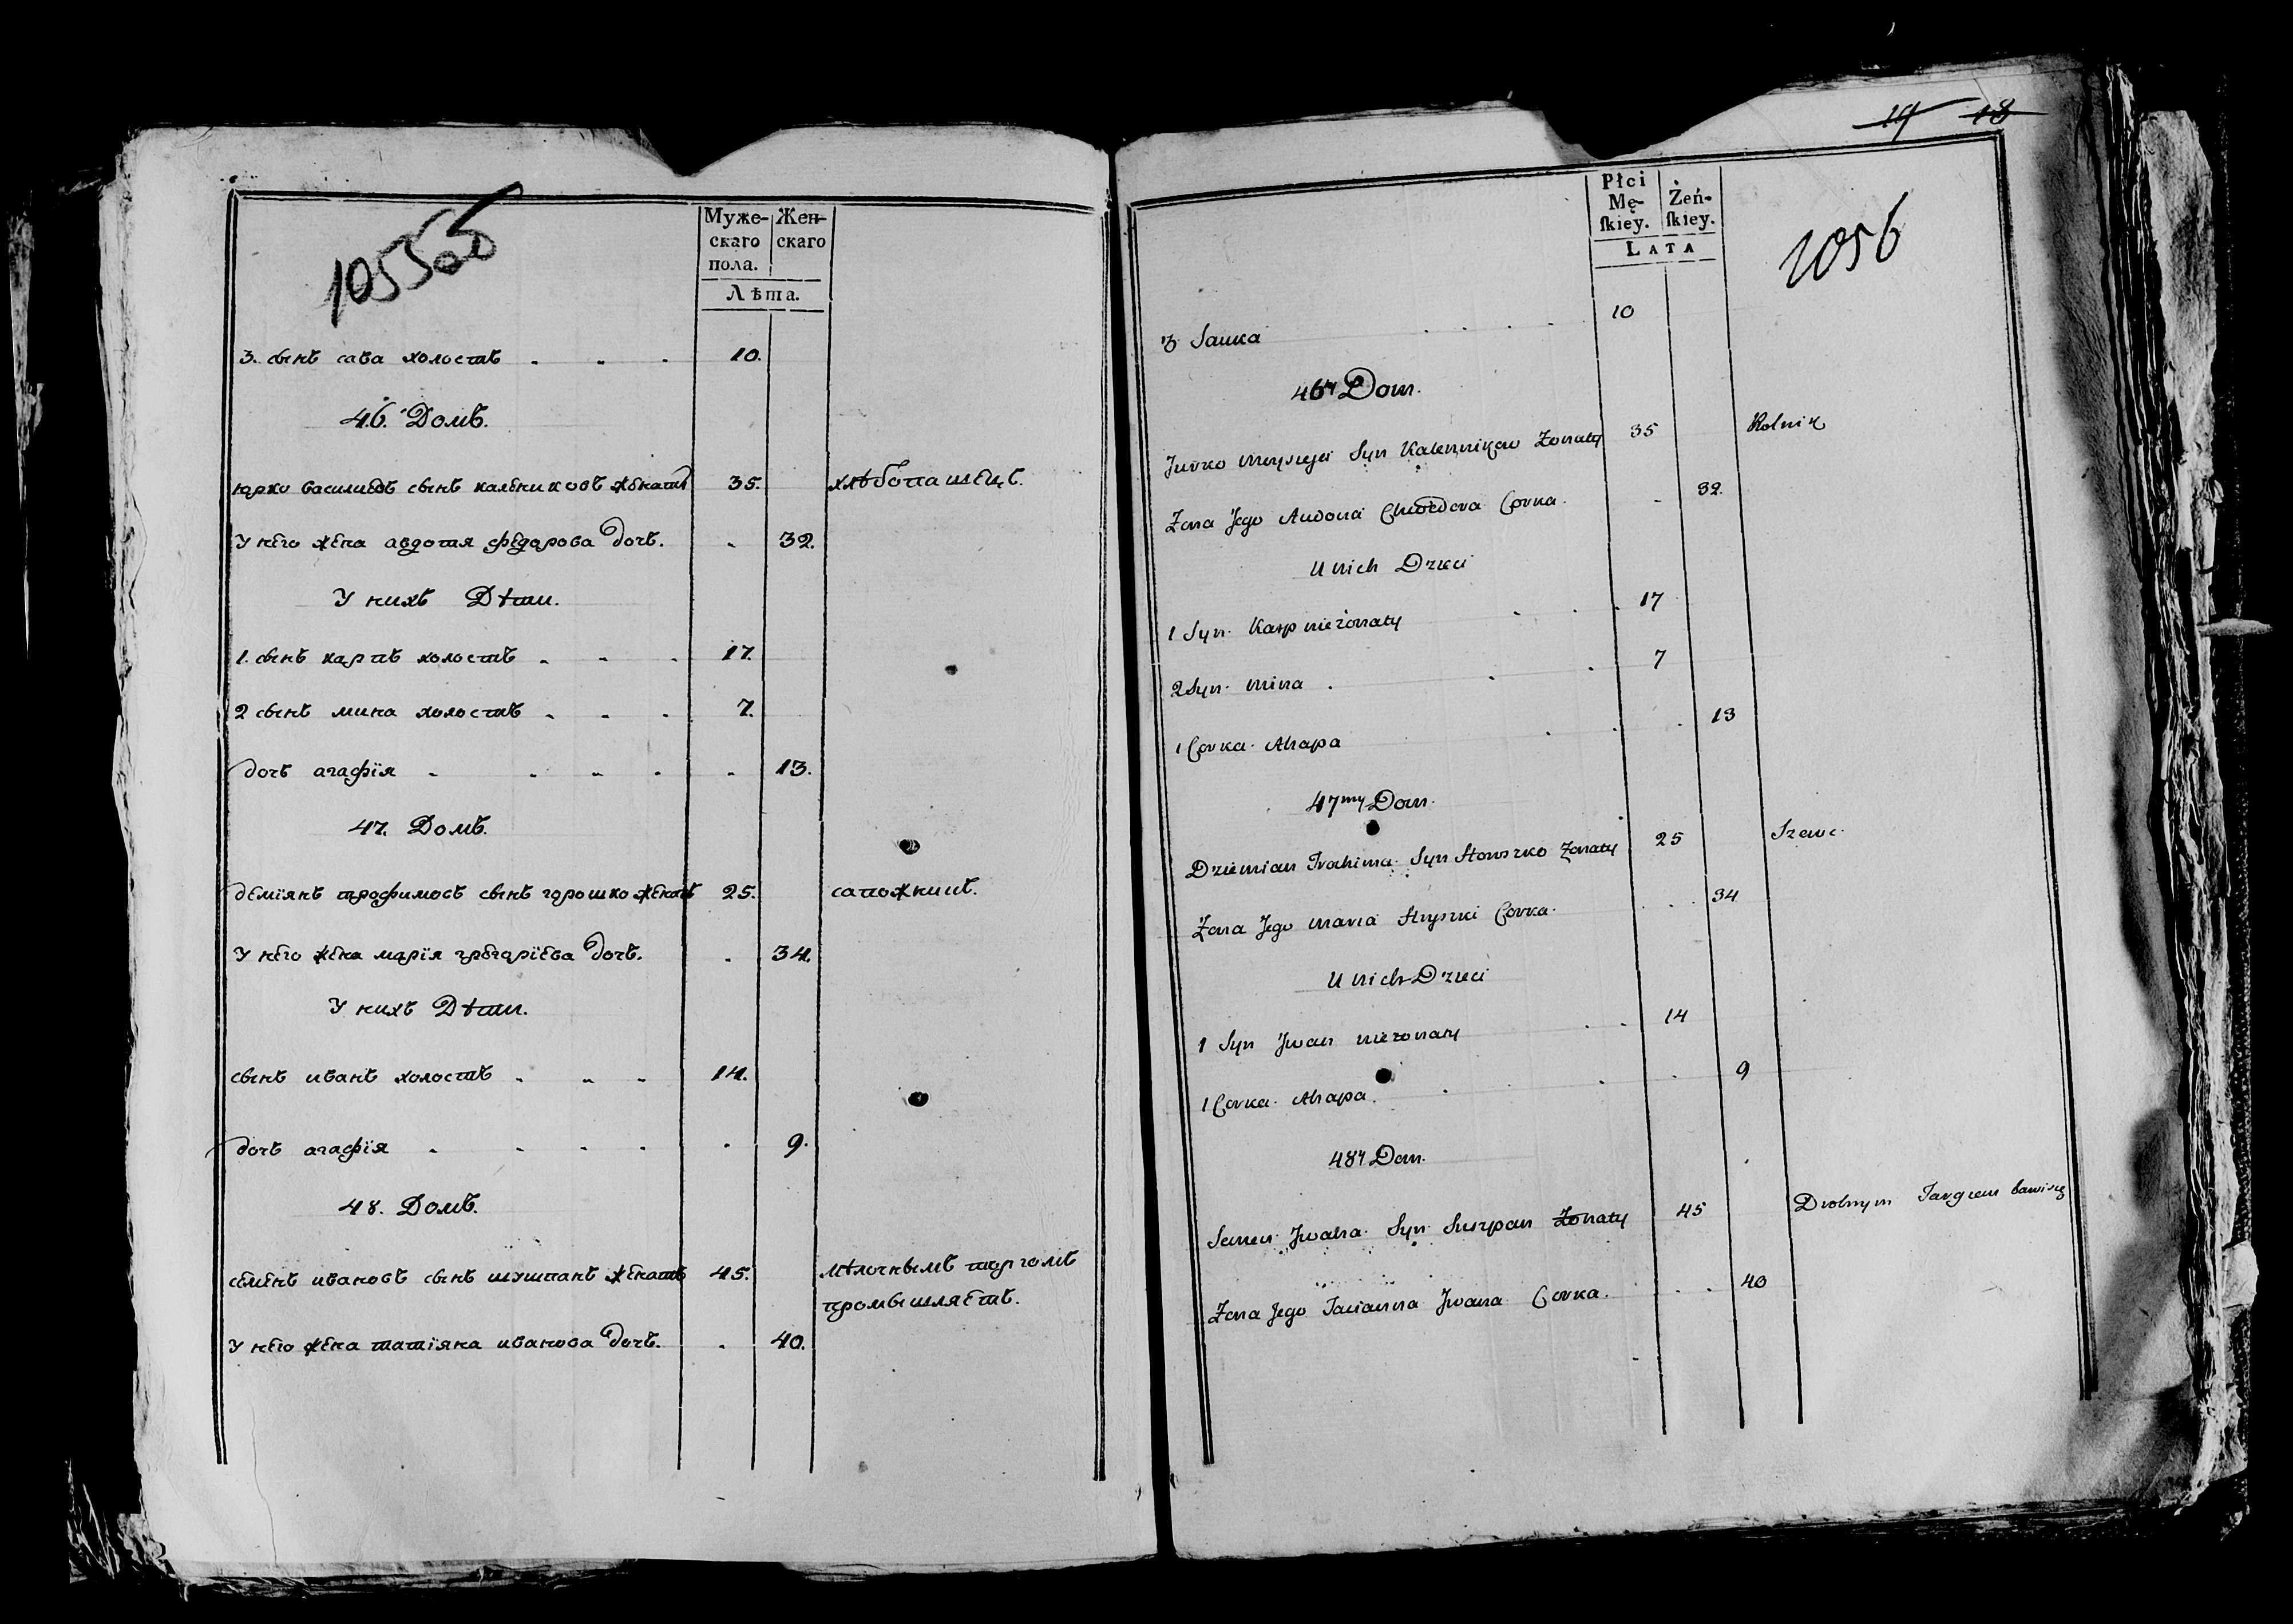 105566
Муже-
скаго
пола.
Жен-
скаго
Лѣта.
3. сынъ сава холостъ 10.
46. Домъ.
юрко василиевъ сынъ калениковъ женатъ 35. хлѣбопашецъ.
У него жена авдотия федорова дочь. 32.
У нихъ Дѣти.
1. сынъ карпъ холостъ 17.
2 сынъ мина холостъ 7.
дочь агафїя 13.
47. Домъ.
демїянъ трофимовъ сынъ горошко женатъ 25. сапожникъ.
У него жена марїя грегорїева дочь. 34.
У нихъ Дѣти.
сынъ иванъ холостъ 14.
дочь агафїя 9.
48. Домъ.
семенъ ивановъ сынъ шушпанъ женатъ 45. мѣлочнымъ торгомъ
промышляетъ.
У него жена татїяна иванова дочь. 40.
19 18
Płci
Mę-
ſkiey.
Żeń-
ſkiey.
LATA
1056
3 Sauka 10
46y Dom.
Jurko Syn Kalennikow Żonaty 35 Rolnik
Żona Jego Audocia Chwedora Corka 32.
U nich Dzieci
1 Syn Karp nieżonaty 17
2 Syn Mina 7
1 Corka Ahapa 13
47my Dom.
Dziemian Trochima Syn Horoszko Żonaty 25 Szewc
Żona Jego Maria Hryszki Corka 34
U nich Dzieci
1 Syn Jwan nieżonaty 14
1 Corka Ahapa 9
48y Dom.
Semen Jwana Syn Suszpan Żonaty 45 Drobnym Targiem bawi się
Żona Jego Tacianna Jwana Corka. 40